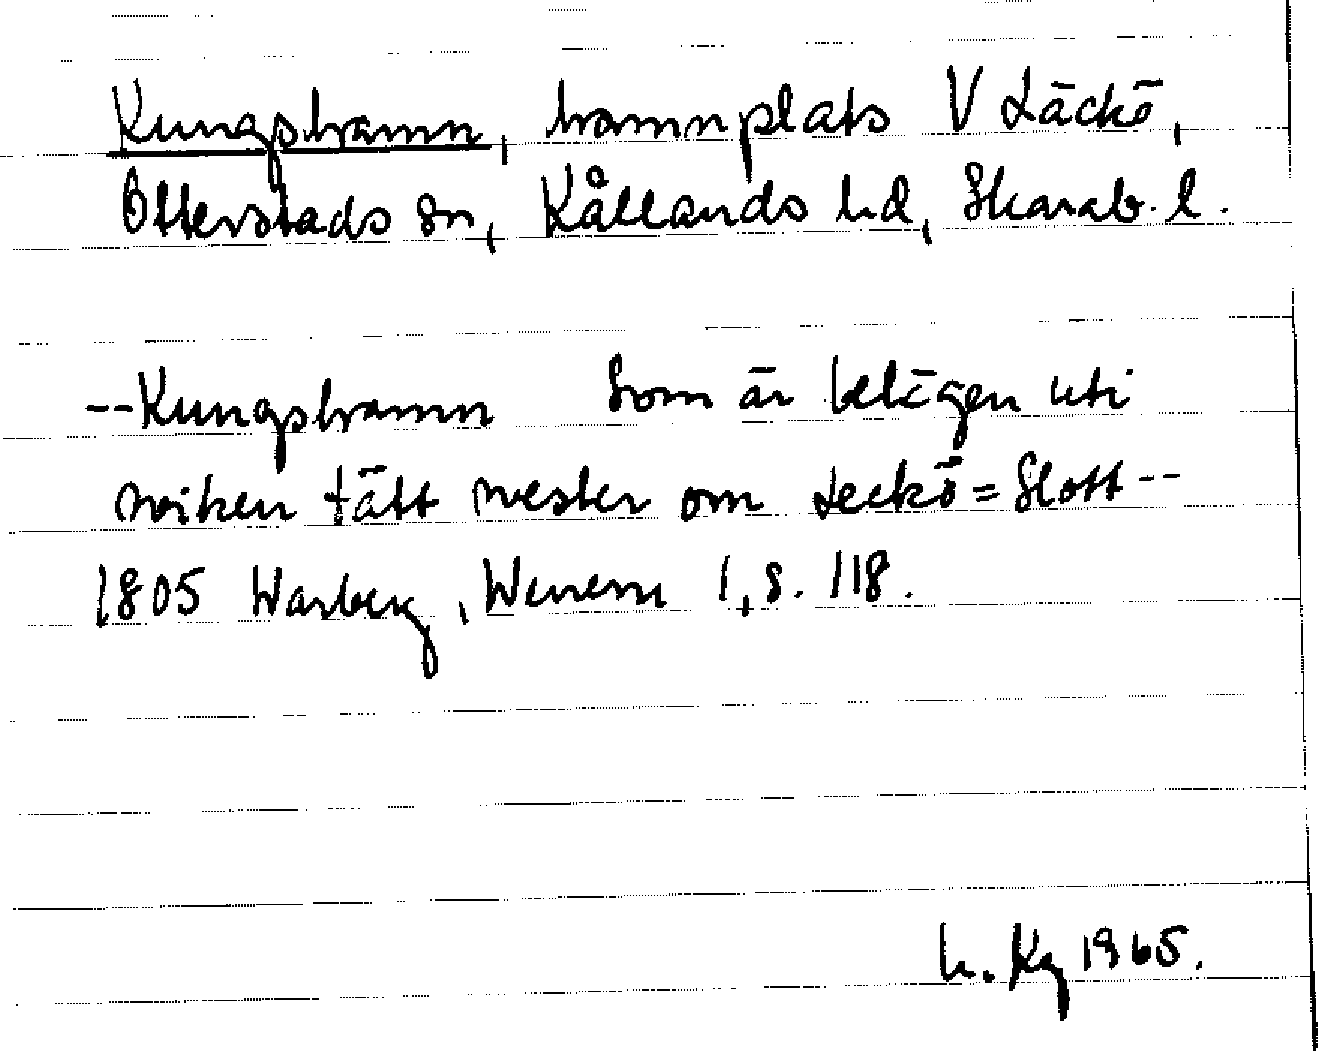 Kungshamn, hamnplats V Läckö,
Otterstads sn, Kållands hd, Skarab. l.
--Kungshamn som är belägen uti
wiken tätt wester om Leckö=Slott--
1805 Warberg, Wenern 1, s. 118.
L. Kg 1965.